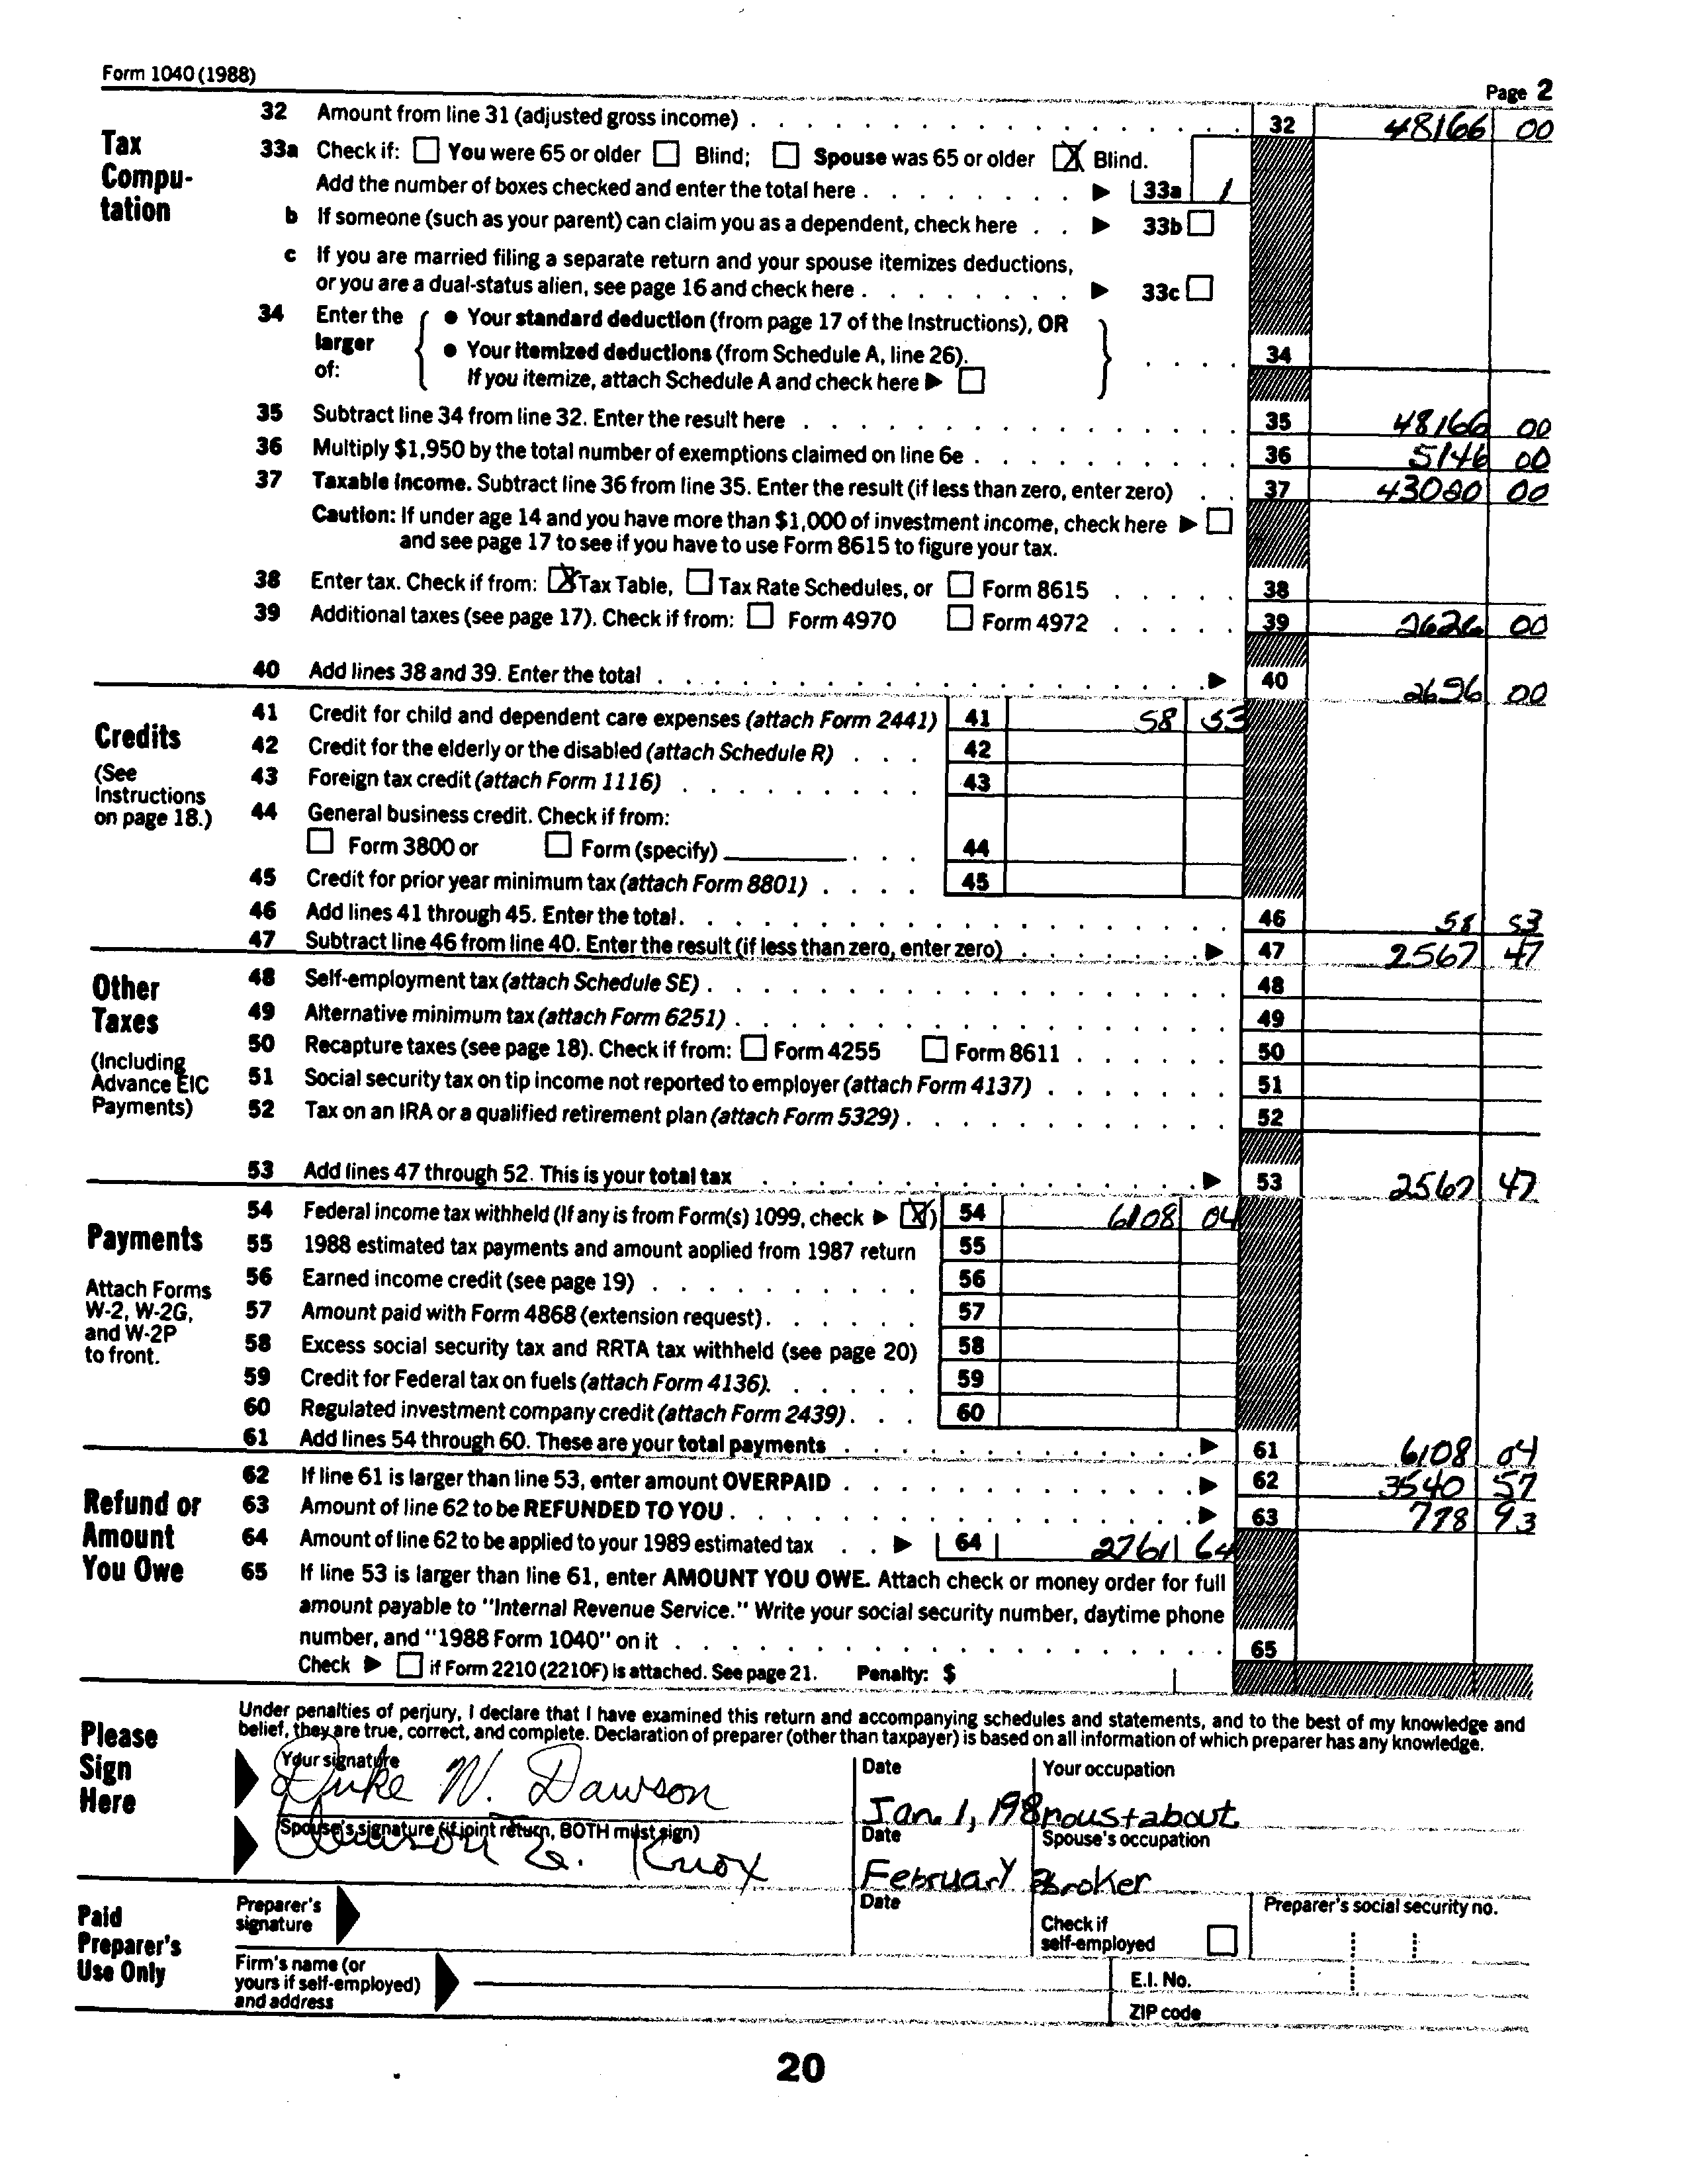 Form 1040 (1988)
Page 2
Tax Compu-tation
32 Amount from line 31 (adjusted gross income) . . . 32 48166 00
33a Check if: You were 65 or older Blind; Spouse was 65 or older X Blind.
Add the number of boxes checked and enter the total here . . . 33a 1
b If someone (such as your parent) can claim you as a dependent, check here . . 33b
c If you are married filing a separate return and your spouse itemizes deductions,
or you are a dual-status alien, see page 16 and check here . . . 33c
34 Enter the larger of:
• Your standard deduction (from page 17 of the Instructions), OR
• Your itemized deductions (from Schedule A, line 26).
If you itemize, attach Schedule A and check here . . . 34
35 Subtract line 34 from line 32. Enter the result here . . . 35 48166 00
36 Multiply $1,950 by the total number of exemptions claimed on line 6e . . . 36 5146 00
37 Taxable income. Subtract line 36 from line 35. Enter the result (if less than zero, enter zero) . . 37 00
Caution: If under age 14 and you have more than $1,000 of investment income, check here
and see page 17 to see if you have to use Form 8615 to figure your tax.
38 Enter tax. Check if from: X Tax Table, Tax Rate Schedules, or Form 8615 . . . 38
39 Additional taxes (see page 17). Check if from: Form 4970 Form 4972 . . . 39 2626 00
40 Add lines 38 and 39. Enter the total . . . 40 00
Credits
(See Instructions on page 18.)
41 Credit for child and dependent care expenses (attach Form 2441) 41 58 53
42 Credit for the elderly or the disabled (attach Schedule R) . . . 42
43 Foreign tax credit (attach Form 1116) . . . 43
44 General business credit. Check if from:
Form 3800 or Form (specify) . . . 44
45 Credit for prior year minimum tax (attach Form 8801) . . . 45
46 Add lines 41 through 45. Enter the total. . . . 46 58 53
47 Subtract line 46 from line 40. Enter the result (if less than zero, enter zero) . . . 47 2567 47
Other Taxes
(Including Advance EIC Payments)
48 Self-employment tax (attach Schedule SE) . . . 48
49 Alternative minimum tax (attach Form 6251) . . . 49
50 Recapture taxes (see page 18). Check if from: Form 4255 Form 8611 . . . 50
51 Social security tax on tip income not reported to employer (attach Form 4137) . . . 51
52 Tax on an IRA or a qualified retirement plan (attach Form 5329) . . . 52
53 Add lines 47 through 52. This is your total tax . . . 53 2567 47
Payments
Attach Forms W-2, W-2G, and W-2P to front.
54 Federal income tax withheld (If any is from Form(s) 1099, check X) 54 6108 04
55 1988 estimated tax payments and amount applied from 1987 return 55
56 Earned income credit (see page 19) . . . 56
57 Amount paid with Form 4868 (extension request). . . . 57
58 Excess social security tax and RRTA tax withheld (see page 20) 58
59 Credit for Federal tax on fuels (attach Form 4136). . . . 59
60 Regulated investment company credit (attach Form 2439). . . 60
61 Add lines 54 through 60. These are your total payments . . . 61 6108 04
Refund or Amount You Owe
62 If line 61 is larger than line 53, enter amount OVERPAID . . . 62 3540 57
63 Amount of line 62 to be REFUNDED TO YOU . . . 63 778 93
64 Amount of line 62 to be applied to your 1989 estimated tax . . 64 2761 64
65 If line 53 is larger than line 61, enter AMOUNT YOU OWE. Attach check or money order for full
amount payable to "Internal Revenue Service." Write your social security number, daytime phone
number, and "1988 Form 1040" on it . . . 65
Check if Form 2210 (2210F) is attached. See page 21. Penalty: $
Please Sign Here
Under penalties of perjury, I declare that I have examined this return and accompanying schedules and statements, and to the best of my knowledge and
belief, they are true, correct, and complete. Declaration of preparer (other than taxpayer) is based on all information of which preparer has any knowledge.
Your signature Date Your occupation
Duke W. Dawson Jan. 1, 198 roustabout
Spouse's signature (if joint return, BOTH must sign) Date Spouse's occupation
E. Knox February Broker
Paid Preparer's Use Only
Preparer's signature Date Check if self-employed Preparer's social security no.
Firm's name (or yours if self-employed) and address E.I. No.
ZIP code
20